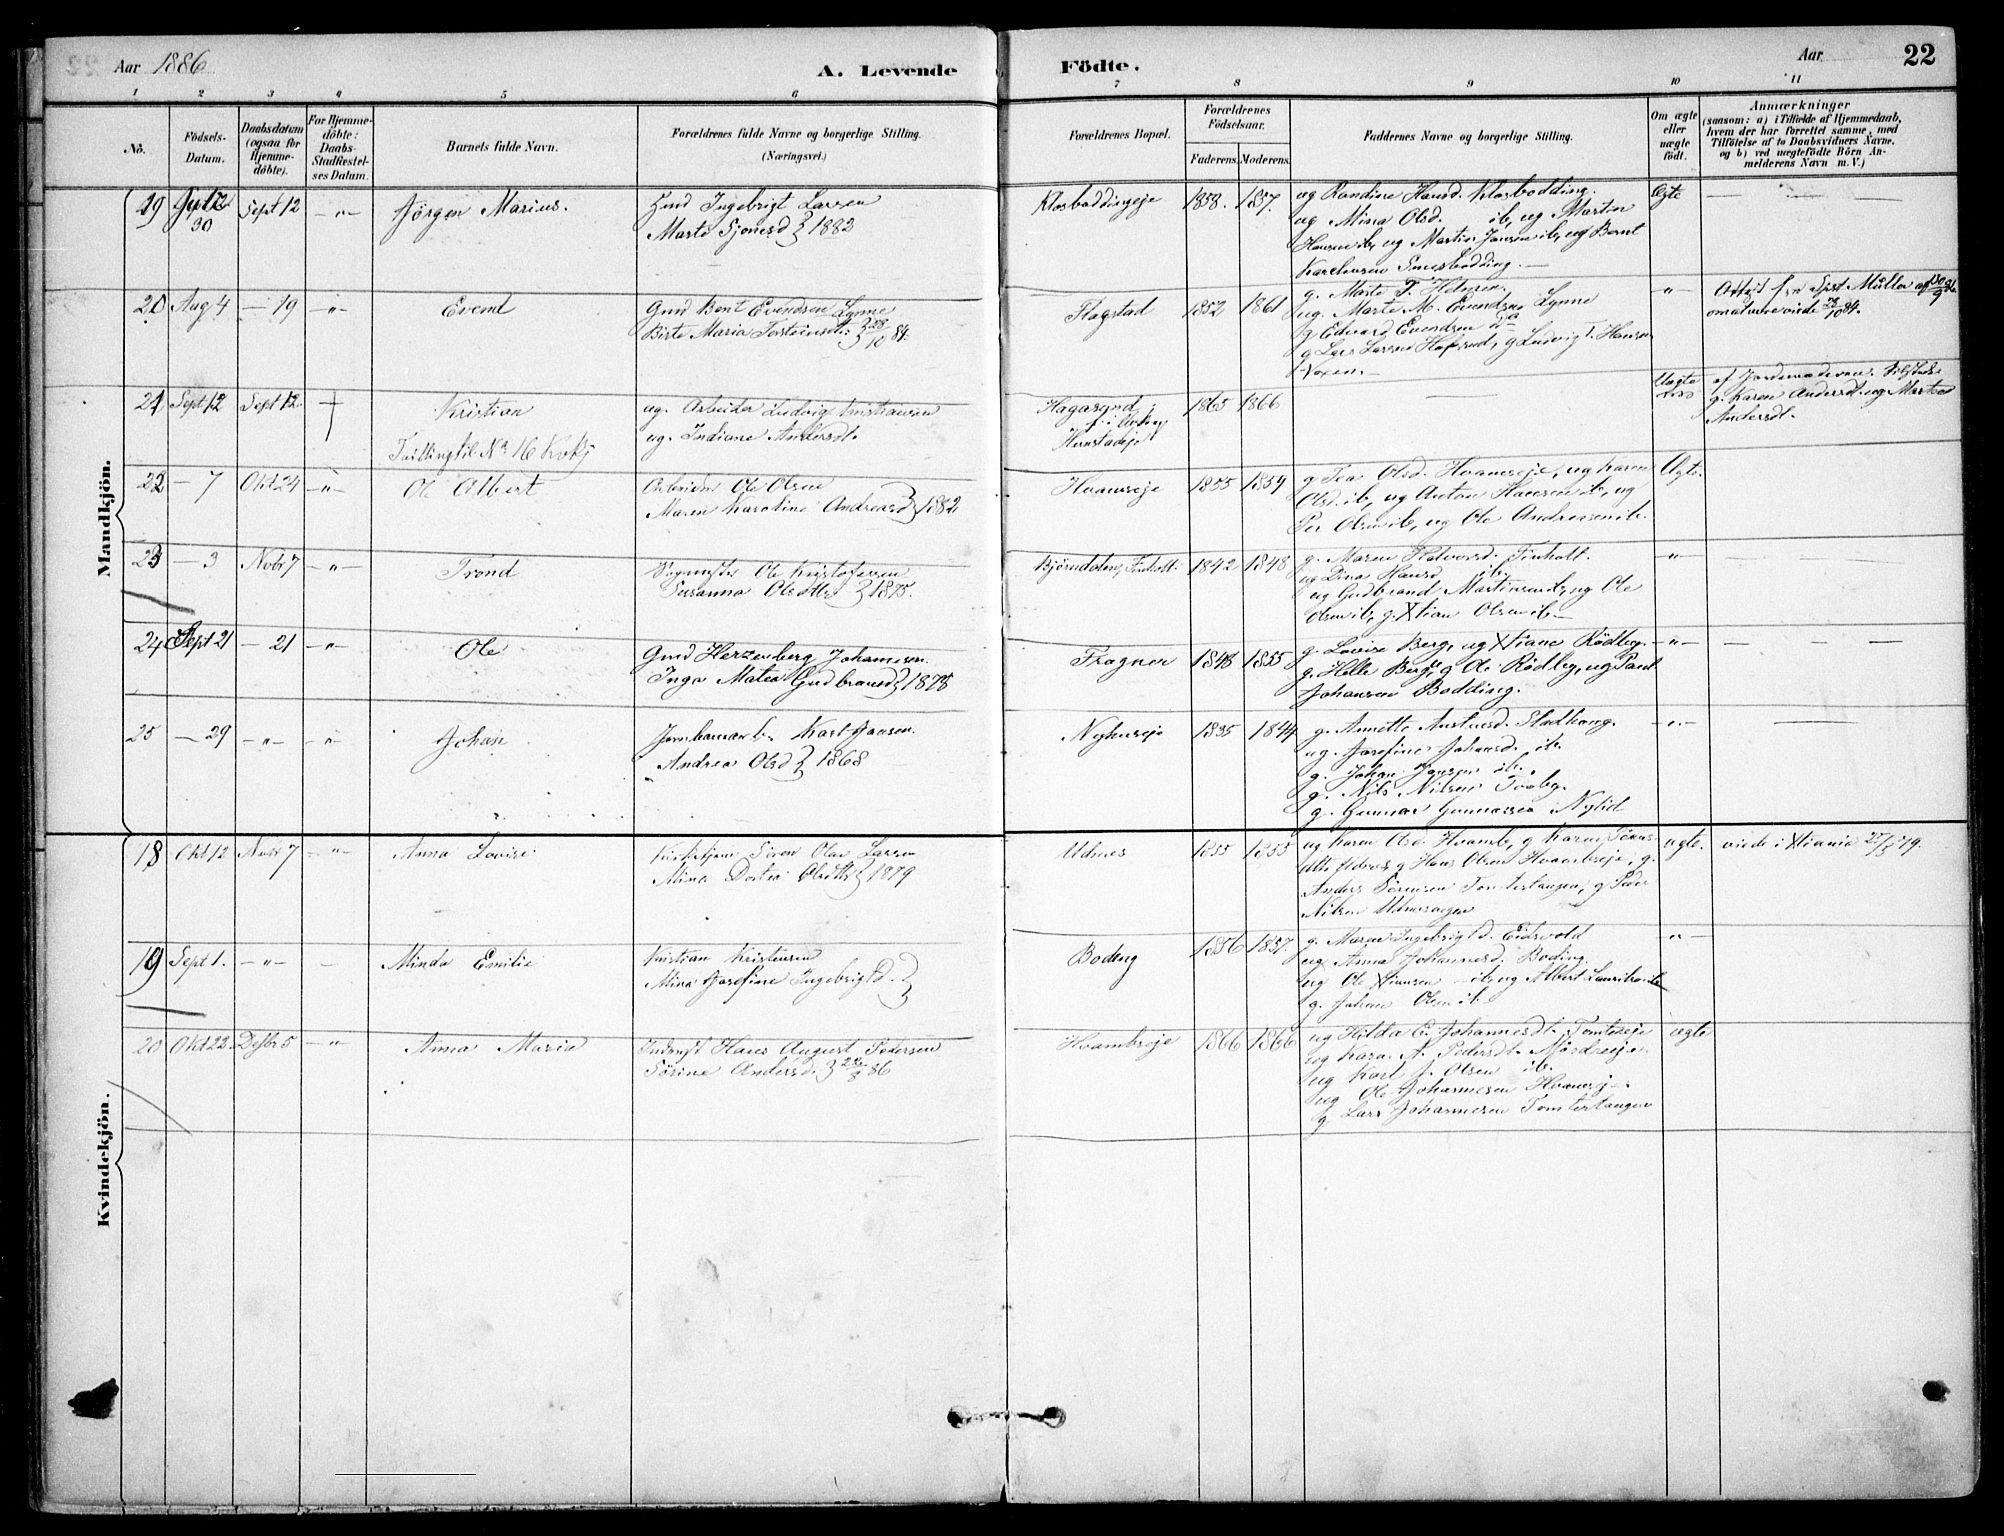 Aar 1886
A. Levende
Födte.
Aar
22
1 2 3 4 5 6 7 8 9 10 11
No.
Födsels-
Datum.
Daabsdatum
(ogsaa for
Hjemme-
döbte).
For Hjemme-
döbte:
Daabs-
Stadfæstel-
ses Datum.
Barnets fulde Navn.
Forældrenes fulde Navne og borgerlige Stilling.
(Næringsvei.)
Forældrenes Bopæl.
Forældrenes
Födselsaar.
Faderens. Moderens.
Faddernes Navne og borgerlige Stilling.
Om ægte
eller
uægte
födt.
Anmærkninger
(saasom: a) i Tilfælde af Hjemmedaab,
hvem der har forrettet samme, med
Tilföielse af to Daabsvidners Navne,
og b) ved uægtefödte Börn An-
melderens Navn m. V.)
Mandkjön.
19 30 Sept 12 — " — Jörgen Marius.
Gmd Ingebrigt Larsen
Marte Sjonesd } 1882
Klosboddingeje 1858. 1857.
ug Randine Hansd. Klosbodding.
ug Mina Olsd. ib, ug Martin
Hansen ib, ug Martin Jansen ib, ug Bernt
Kareliusen Smedsbodding. —
Ægte — —
20 Aug 4 — 19 — " — Evend
Gmd Bent Evendsen Lynne
Birte Maria Torsteinsdt: } 23/10 84.
Flagstad 1852 1861
g. Marte T. Helnæs.
ug. Marte M. Evendsen Lynne
g Edvard Evendsen do
g Lars Larsen Hafsrud, g Ludvig T. Hansen
Voxen. —
— " —
Müller
21 Sept 12 Sept 12. † Kristian
Tvilling til No 16 Kvkj
ug. Arbeider Ludvig Kristiansen
ug. Indiane Andersdt.
1865 1866
Uægte
af Jordemoderen.
g. Karen Andersdt. og Marthe
Andersdt.
22 — 7 Okt 24 — " — Ole Albert
Ole Olsen
Maren Karoline Andreasd } 1882
Hvamseje 1855 1859
g Tea Olsd. Hvamseje, ug Karen
Olsd. ib, ug Anton Hansen ib, ug
Per Olsen ib, ug Ole Andreasen ib.
Ægte.
23 — 3 Novbr 7 — " — Trond
Ole Kristofersen
Susanna Olsdtr } 1875.
Björndalen, Finholt. 1842 1848
g. Maren Halvorsd. Finholt.
ug Dina Hansd ib.
ug Gudbrand Martinsen ib, ug Ole
Olsen ib, g. Xtian Olsen ib —
— " —
24 Sept 21 — 21 — " — Ole
Gmd Herzenberg Johannesen
Inga Matea Gudbransd } 1878
Frogner 1848 1855
g. Lovise Berg, ug Xtiane Rödby.
g. Helle Berg, g Ole Rödby, ug Paul
Johansen Bodding.
— " — — — —
25 — 29 — " — — " — Johan
Karl Jansen.
Andrea Olsd } 1868
Nyhuseje 1835 1844
g. Annette Stadhaug.
ug. Josefine Johansd. ib.
g. Johan Jansen ib.
g. Nils Nilsen
g. Gunnar Gunnarsen Nylid
— " —
Kvindekjön.
18 Okt 12 Novbr 7 — " — Anna Lovise.
Sören Olav Larsen
Mina Dortea Olsdtr } 1879
Udnes 1855 1855
ug Karen Olsd. Hvamb, g Karen
g Hans Olsen Hvambseje, g.
Anders Sörensen Tomterstangen, g Peder
Nilsen
ægte.
viede i Xtiania 27/5 79.
19 Sept 1. — " — — Minda Emilie
Kristian Kristensen
Mina Josefine Ingebrigtd. }
Bodeng 1856 1857.
g. Maren Ingebrigtd. Eidsvold
ug Anna Johannesd. Boding
ug Ole Xtiansen ib, ug Albert
g. Johan Olsen ib —
— " —
20 Okt 22. Desbr 5 — " — Anna Marie
Hans August Pedersen
Sörine Andersd. } 86
Hvambseje 1866 1866
ug Hilda E. Johannesdt. Tomtereje
ug Kara A. Pedersdt. Mördreeje.
ug Karl J. Olsen ib.
ug Ole Johannesen Hvamseje.
g Lars Johannesen Tomterstangen
ægte